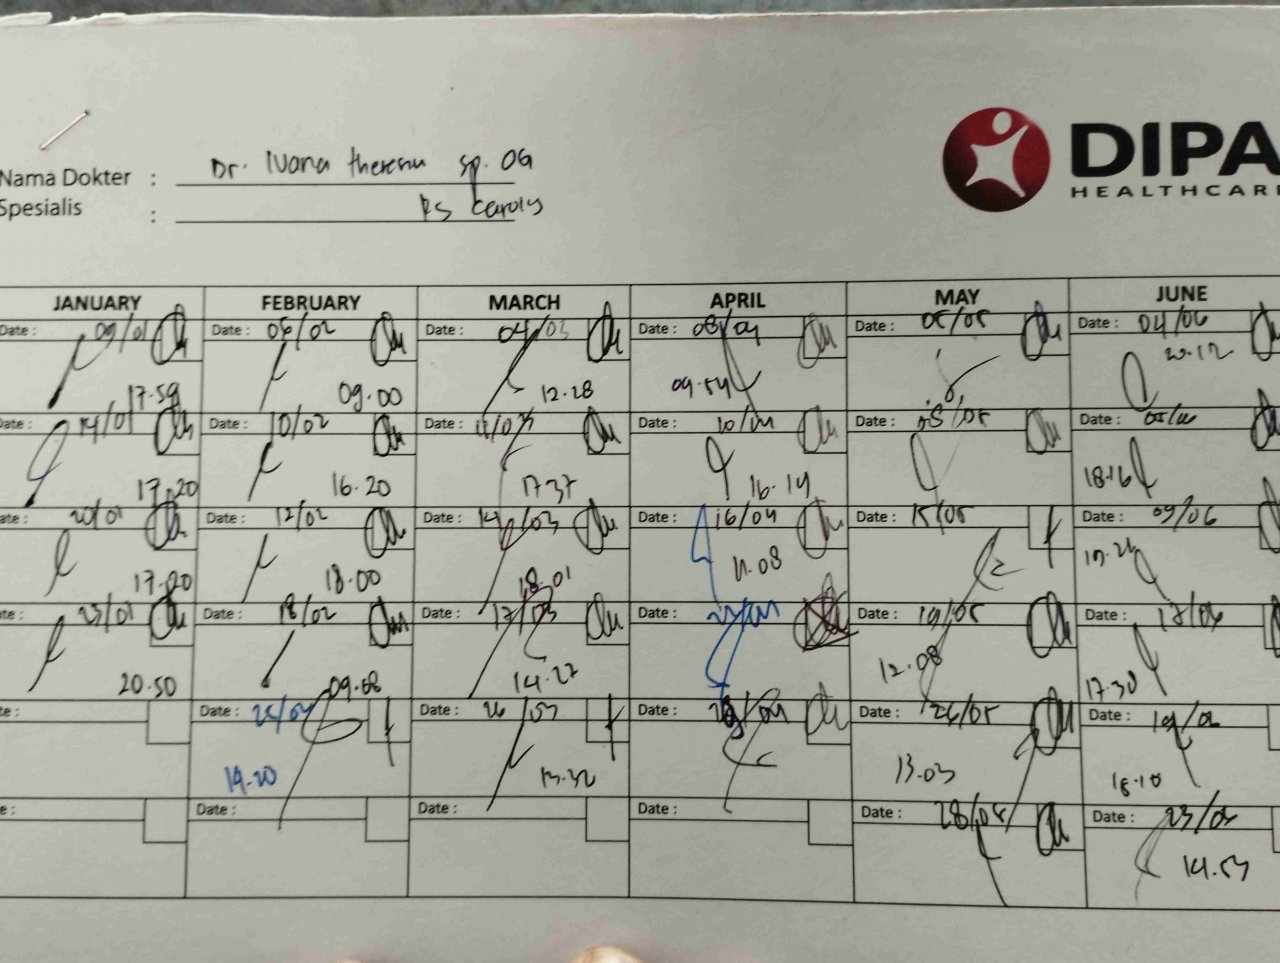 DIPA
HEALTHCAR
Nama Dokter : Dr. Ivana sp. OG
Spesialis : RS
JANUARY FEBRUARY MARCH APRIL MAY JUNE
Date : 09/01 Date : 06/02 Date : 04/03 Date : 08/04 Date : 05/05 Date : 04/06
17.59 09.00 12.28 09.54 20.12
ate : 14/01 Date : 10/02 Date : 11/03 Date : 10/04 Date : 08/05 Date :
17.20 16.20 17.37 16.14 18.16
ate : 20/01 Date : 12/02 Date : 14/03 Date : 16/04 Date : 15/05 Date : 09/06
17.20 18.00 18.01 11.08
te : 23/01 Date : 18/02 Date : 17/03 Date : Date : 19/05 Date : 17/06
20.50 09.08 14.27 12.08 17.30
te : Date : 25/02 Date : 26/03 Date : Date : 26/05 Date : 19/06
19.20 13.32 13.03 18.10
e : Date : Date : Date : Date : 28/05 Date : 23/06
14.53